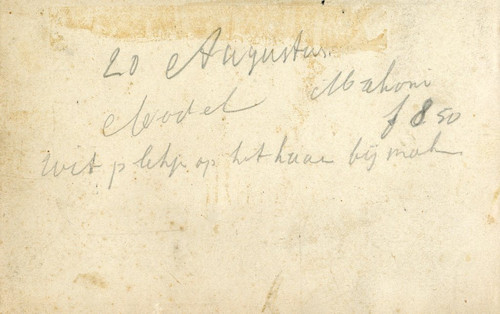 20 Augustus.
Model Mahoni
f 8 50
Wit plekje op het haar bij